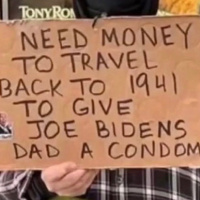 TONYRO
NEED MONEY
TO TRAVEL
BACK TO 1941
TO GIVE
JOE BIDENS
DAD A CONDOM